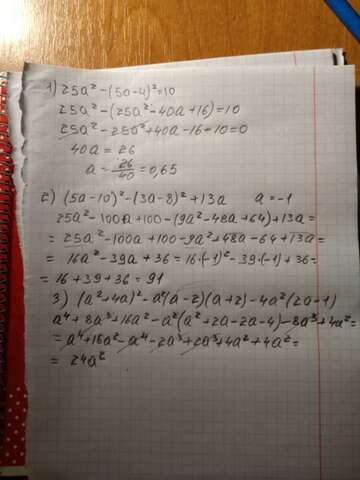 1) 25a² - (5a-4)² = 10
25a² - (25a² - 40a + 16) = 10
25a² - 25a² + 40a - 16 - 10 = 0
40a = 26
a = 26/40 = 0,65
2) (5a-10)² - (3a-8)² + 13a a = -1
25a² - 100a + 100 - (9a² - 48a + 64) + 13a =
= 25a² - 100a + 100 - 9a² + 48a - 64 + 13a =
= 16a² - 39a + 36 = 16·(-1)² - 39·(-1) + 36 =
= 16 + 39 + 36 = 91
3) (a² + 4a)² - a²(a-2)(a+2) - 4a²(2a-1)
a⁴ + 8a³ + 16a² - a²(a² + 2a - 2a - 4) - 8a³ + 4a² =
= a⁴ + 16a² - a⁴ - 2a³ + 2a³ + 4a² + 4a² =
= 24a²